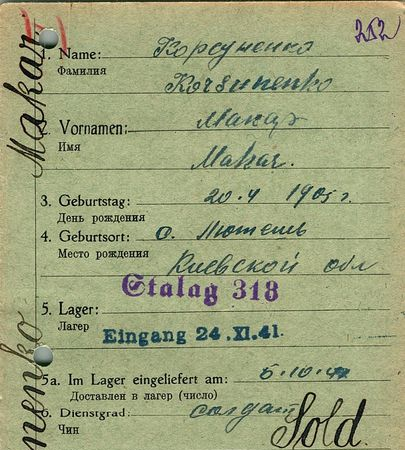 252
Makar
1. Name: Корсуненко
Фамилия
Korsunenko
2. Vornamen: Макар
Имя
Makar.
3. Geburtstag: 20. 4 1905 г.
День рождения
4. Geburtsort: с. Лютень
Место рождения
Киевской обл
Stalag 318
5. Lager:
Лагер
Eingang 24.XI.41.
5a. Im Lager eingeliefert am: 5.10.41
Доставлен в лагер (число)
6. Dienstgrad: солдат
Чин
Sold.
nenko